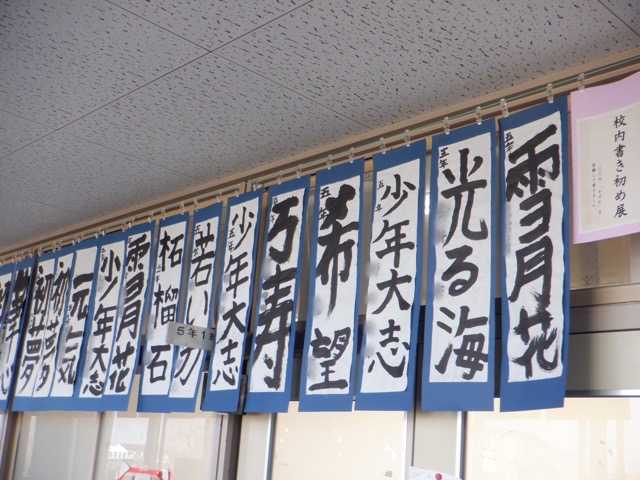 校内書き初め展
五年
雪月花
五年
光る海
五年
少年大志
五年
希望
五年
万寿
五年
少年大志
若い力
柘榴石
5年1
雪月花
少年大志
元気
初夢
初夢